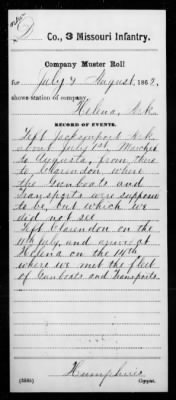 D Co., 3 Missouri Infantry.
Company Muster Roll
for July & August, 1862,
shows station of company
Helena, Ark
RECORD OF EVENTS.
Left Jacksonport Ark
about July 1st. Marched
to Augusta, from there
to Clarendon where
the Gunboats and
Transports were suppose
to be, but which we
did not see
Left Clarendon on the
11th July, and arrived at
Helena on the 14th
where we met the fleet
of Gunboats and Transports.
Humphries
Copyist.